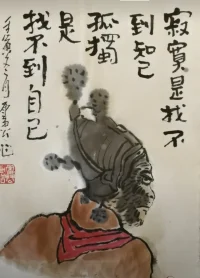 寂寞是找不
到知己
孤獨
是
找不到自己
壬寅